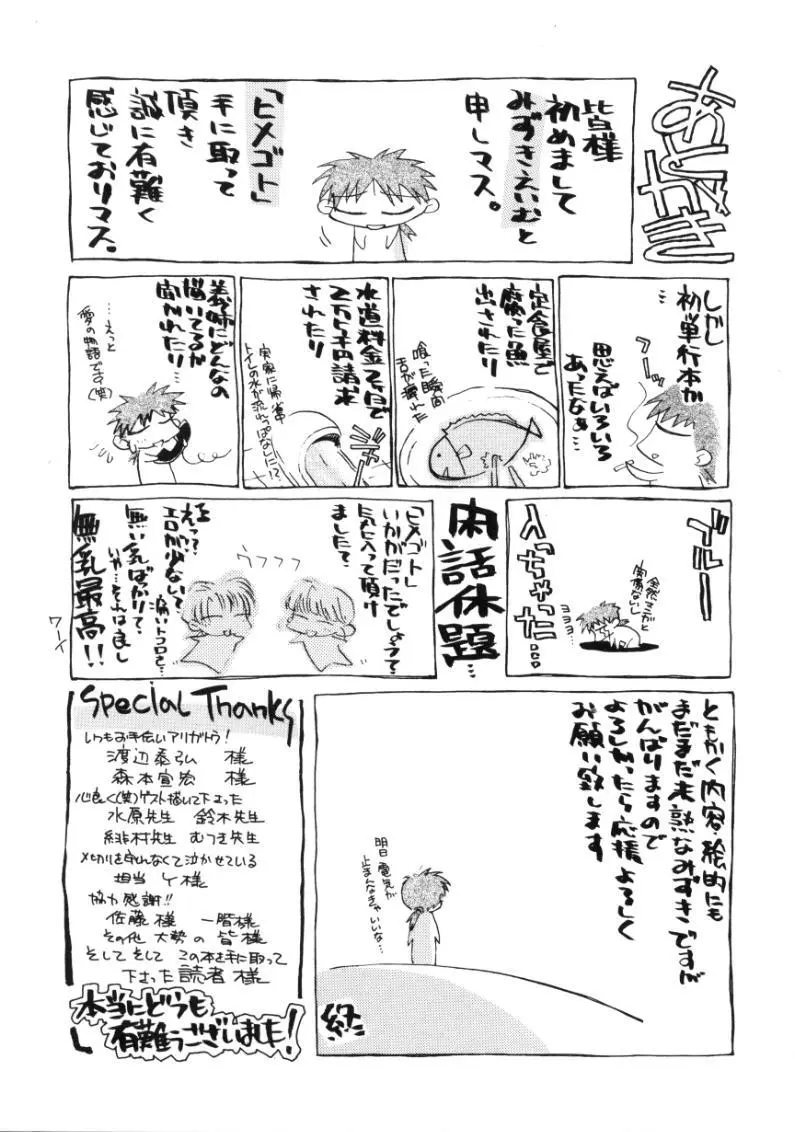 あとがき
皆様
初めまして
みずきえいむと
申しマス。
「ヒメゴト」
手に取って
頂き
誠に有難く
感じておりマス。
しかし
初単行本か
…
思えばいろいろ
あったなぁ…
フーッ
定食屋で
腐った魚
出されたり
喰った瞬間
舌が痺れた
水道料金2ヶ月で
2万5千円請求
されたり
実家に帰省中
トイレの水が流れっぱなしに!?
義姉にどんなの
描いてるか
聞かれたり…
…えっと
愛の物語です(笑)
ブルーー
入っちゃった…
全然マンガと
関係ないし
ヨヨヨ…
閑話休題
「ヒメゴト」
いかがだったでしょうて
気に入って頂け
ましたて
ウフフフ
えっ?
エロが少ないて
痛いトコロを…
無い乳ばっかりて
いや…それは良し
無乳最高!!
ワーイ
ともかく内容・絵的にも
まだまだ未熟なみずきですが
がんばりますので
よろしかったら応援よろしく
お願い致します
明日電気が
止まんなきゃいいな…
終
Special Thanks
いつもお手伝いアリガトう!
渡辺泰弘 様
森本宣宏 様
心良く(笑)ゲスト描いて下さった
水原先生 鈴木先生
緋村先生 むつき先生
〆切りを守んなくて泣かせている
担当 Y様
協力感謝!!
佐藤様 一階様
その他 大勢の皆様
そして そして この本を手に取って
下さった読者様
本当にどうも
有難うございました!